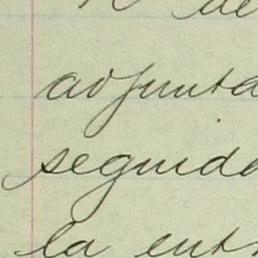 de
adjunta
seguida
la ent